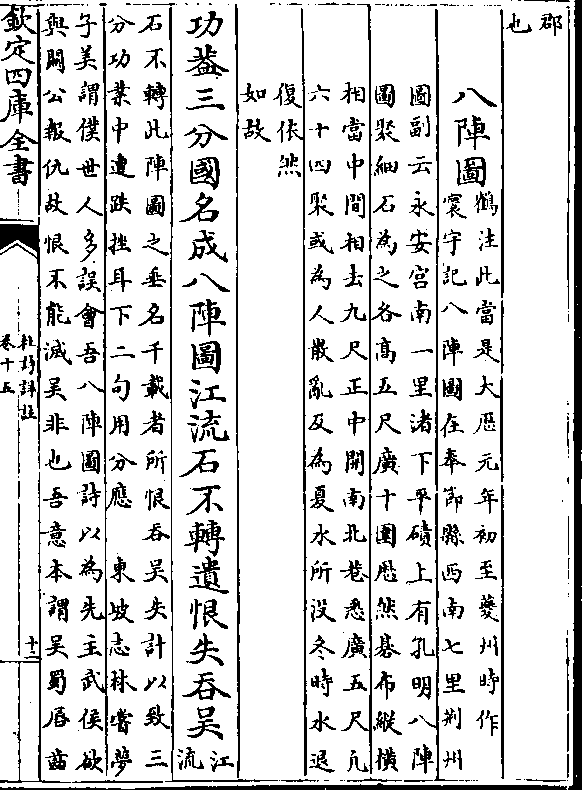 郡
也
八陣圖
鶴注此當是大厯元年初至夔州時作
寰宇記八陣圖在奉節縣西南七里荆州
圖副云永安宫南一里渚下平磧上有孔明八陣
圖聚細石為之各高五尺廣十圍厯然棊布縱横
相當中間相去九尺正中開南北巷悉廣五尺凢
六十四聚或為人散亂及為夏水所没冬時水退
復依然
如故
功葢三分國名成八陣圖江流石不轉遺恨失吞吳
江
流
石不轉此陣圖之垂名千載者所恨吞吳失計以致三
分功業中遭跌挫耳下二句用分應 東坡志林嘗夢
子美謂僕世人多誤會吾八陣圖詩以為先主武侯欲
與闗公報仇故恨不能滅吳非也吾意本謂吳蜀唇齒
欽定四庫全書
杜詩詳註
卷十五
十二